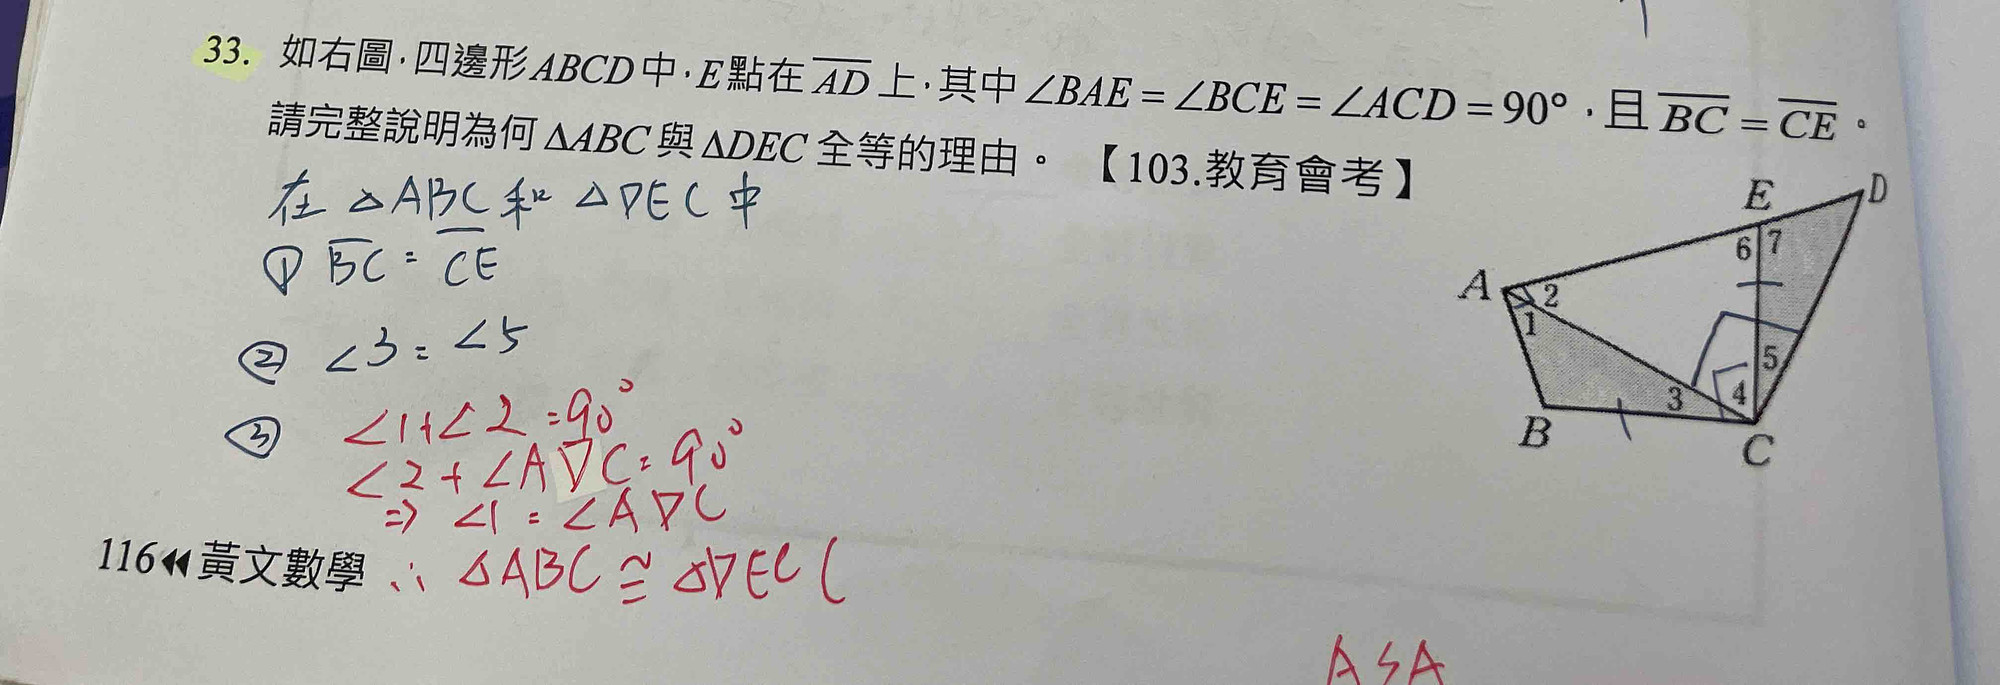 33. 如右圖,四邊形ABCD中,E點在AD上,其中∠BAE=∠BCE=∠ACD=90°,且BC=CE。
請完整說明為何ΔABC與ΔDEC全等的理由。【103.教育會考】
在 △ABC 和 △DEC 中
① BC = CE
② ∠3 = ∠5
③ ∠1+∠2=90°
∠2+∠ADC=90°
⇒ ∠1 = ∠ADC
∴ △ABC ≅ △DEC (
ASA
116 黃文數學
E
D
6
7
A
2
1
5
3
4
B
C